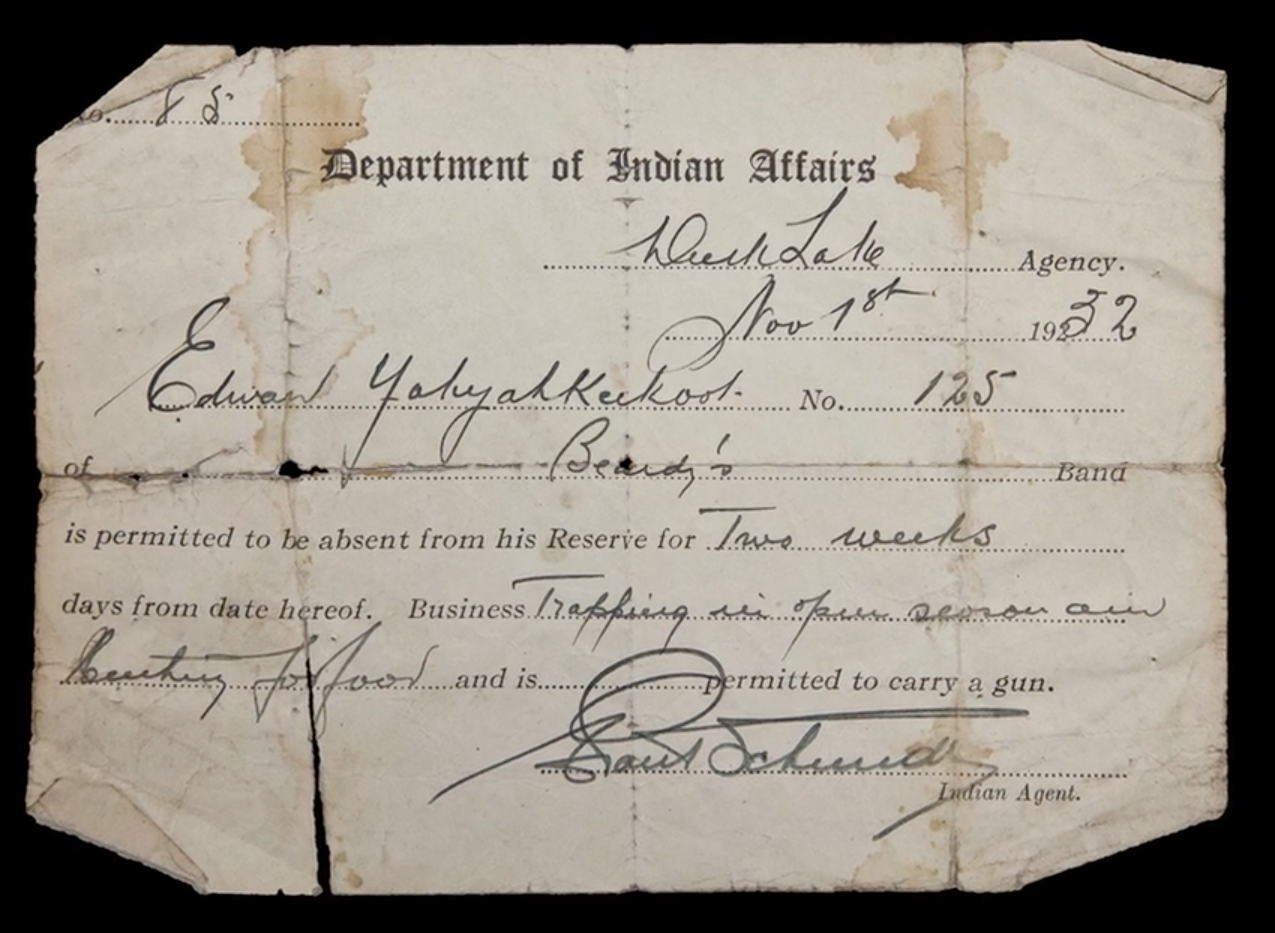 No. 85
Department of Indian Affairs
Duck Lake Agency.
Nov 1st 1932
Edward Yahyahkeekoot. No. 125
of Beardy's Band
is permitted to be absent from his Reserve for Two weeks
days from date hereof. Business Trapping in open season and
Hunting for food and is permitted to carry a gun.
Schmidt
Indian Agent.